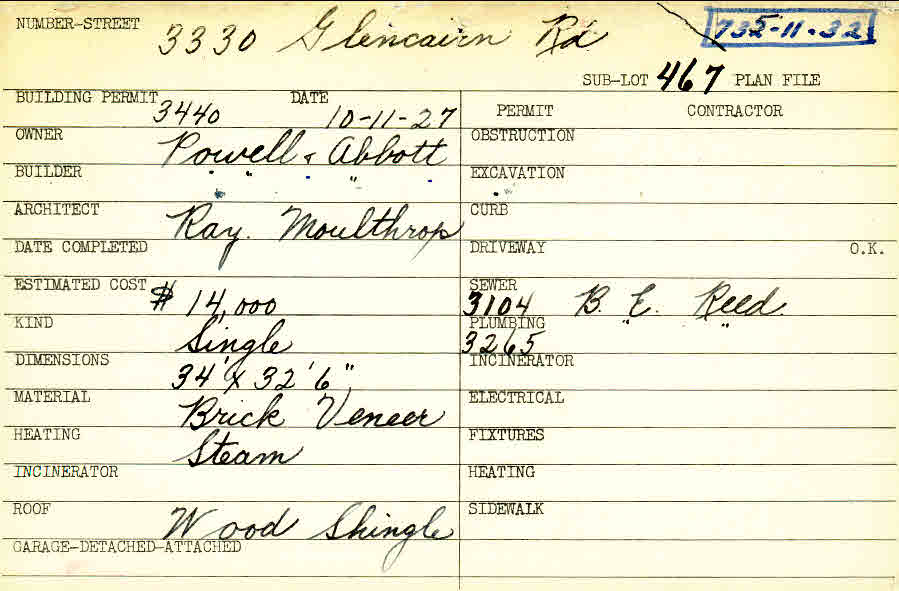 NUMBER-STREET 3330 Glencairn Rd 735-11-32
SUB-LOT 467 PLAN FILE
BUILDING PERMIT 3440 DATE 10-11-27 PERMIT CONTRACTOR
OWNER Powell & Abbott OBSTRUCTION
BUILDER " " " " EXCAVATION
ARCHITECT Ray. Moulthrop CURB
DATE COMPLETED DRIVEWAY O.K.
ESTIMATED COST $ 14,000 SEWER 3104 B. E. Reed.
KIND Single PLUMBING 3265 " "
DIMENSIONS 34' x 32'6" INCINERATOR
MATERIAL Brick Veneer ELECTRICAL
HEATING Steam FIXTURES
INCINERATOR HEATING
ROOF Wood Shingle SIDEWALK
GARAGE-DETACHED-ATTACHED